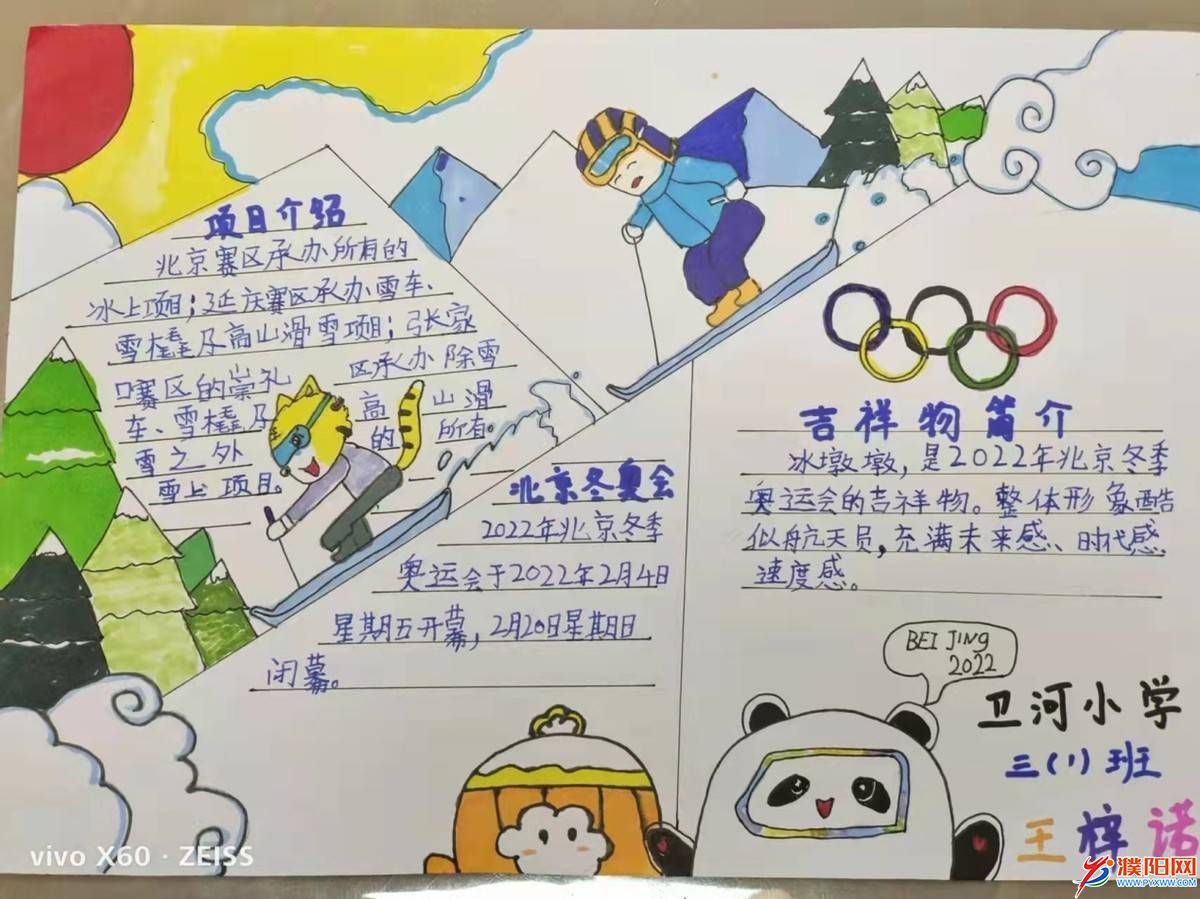 项目介绍
北京赛区承办所有的
冰上项目；延庆赛区承办雪车、
雪橇及高山滑雪项目；张家
口赛区的崇礼 区承办除雪
车、雪橇及 高山滑
雪之外 的所有。
雪上项目。
北京冬奥会
2022年北京冬季
奥运会于2022年2月4日
星期五开幕，2月20日星期日
闭幕。
吉祥物简介
冰墩墩，是2022年北京冬季
奥运会的吉祥物。整体形象酷
似航天员，充满未来感、时代感
速度感。
BEIJING
2022
卫河小学
三(1)班
王梓诺
vivo X60 · ZEISS
濮阳网
WWW.PYXWW.COM